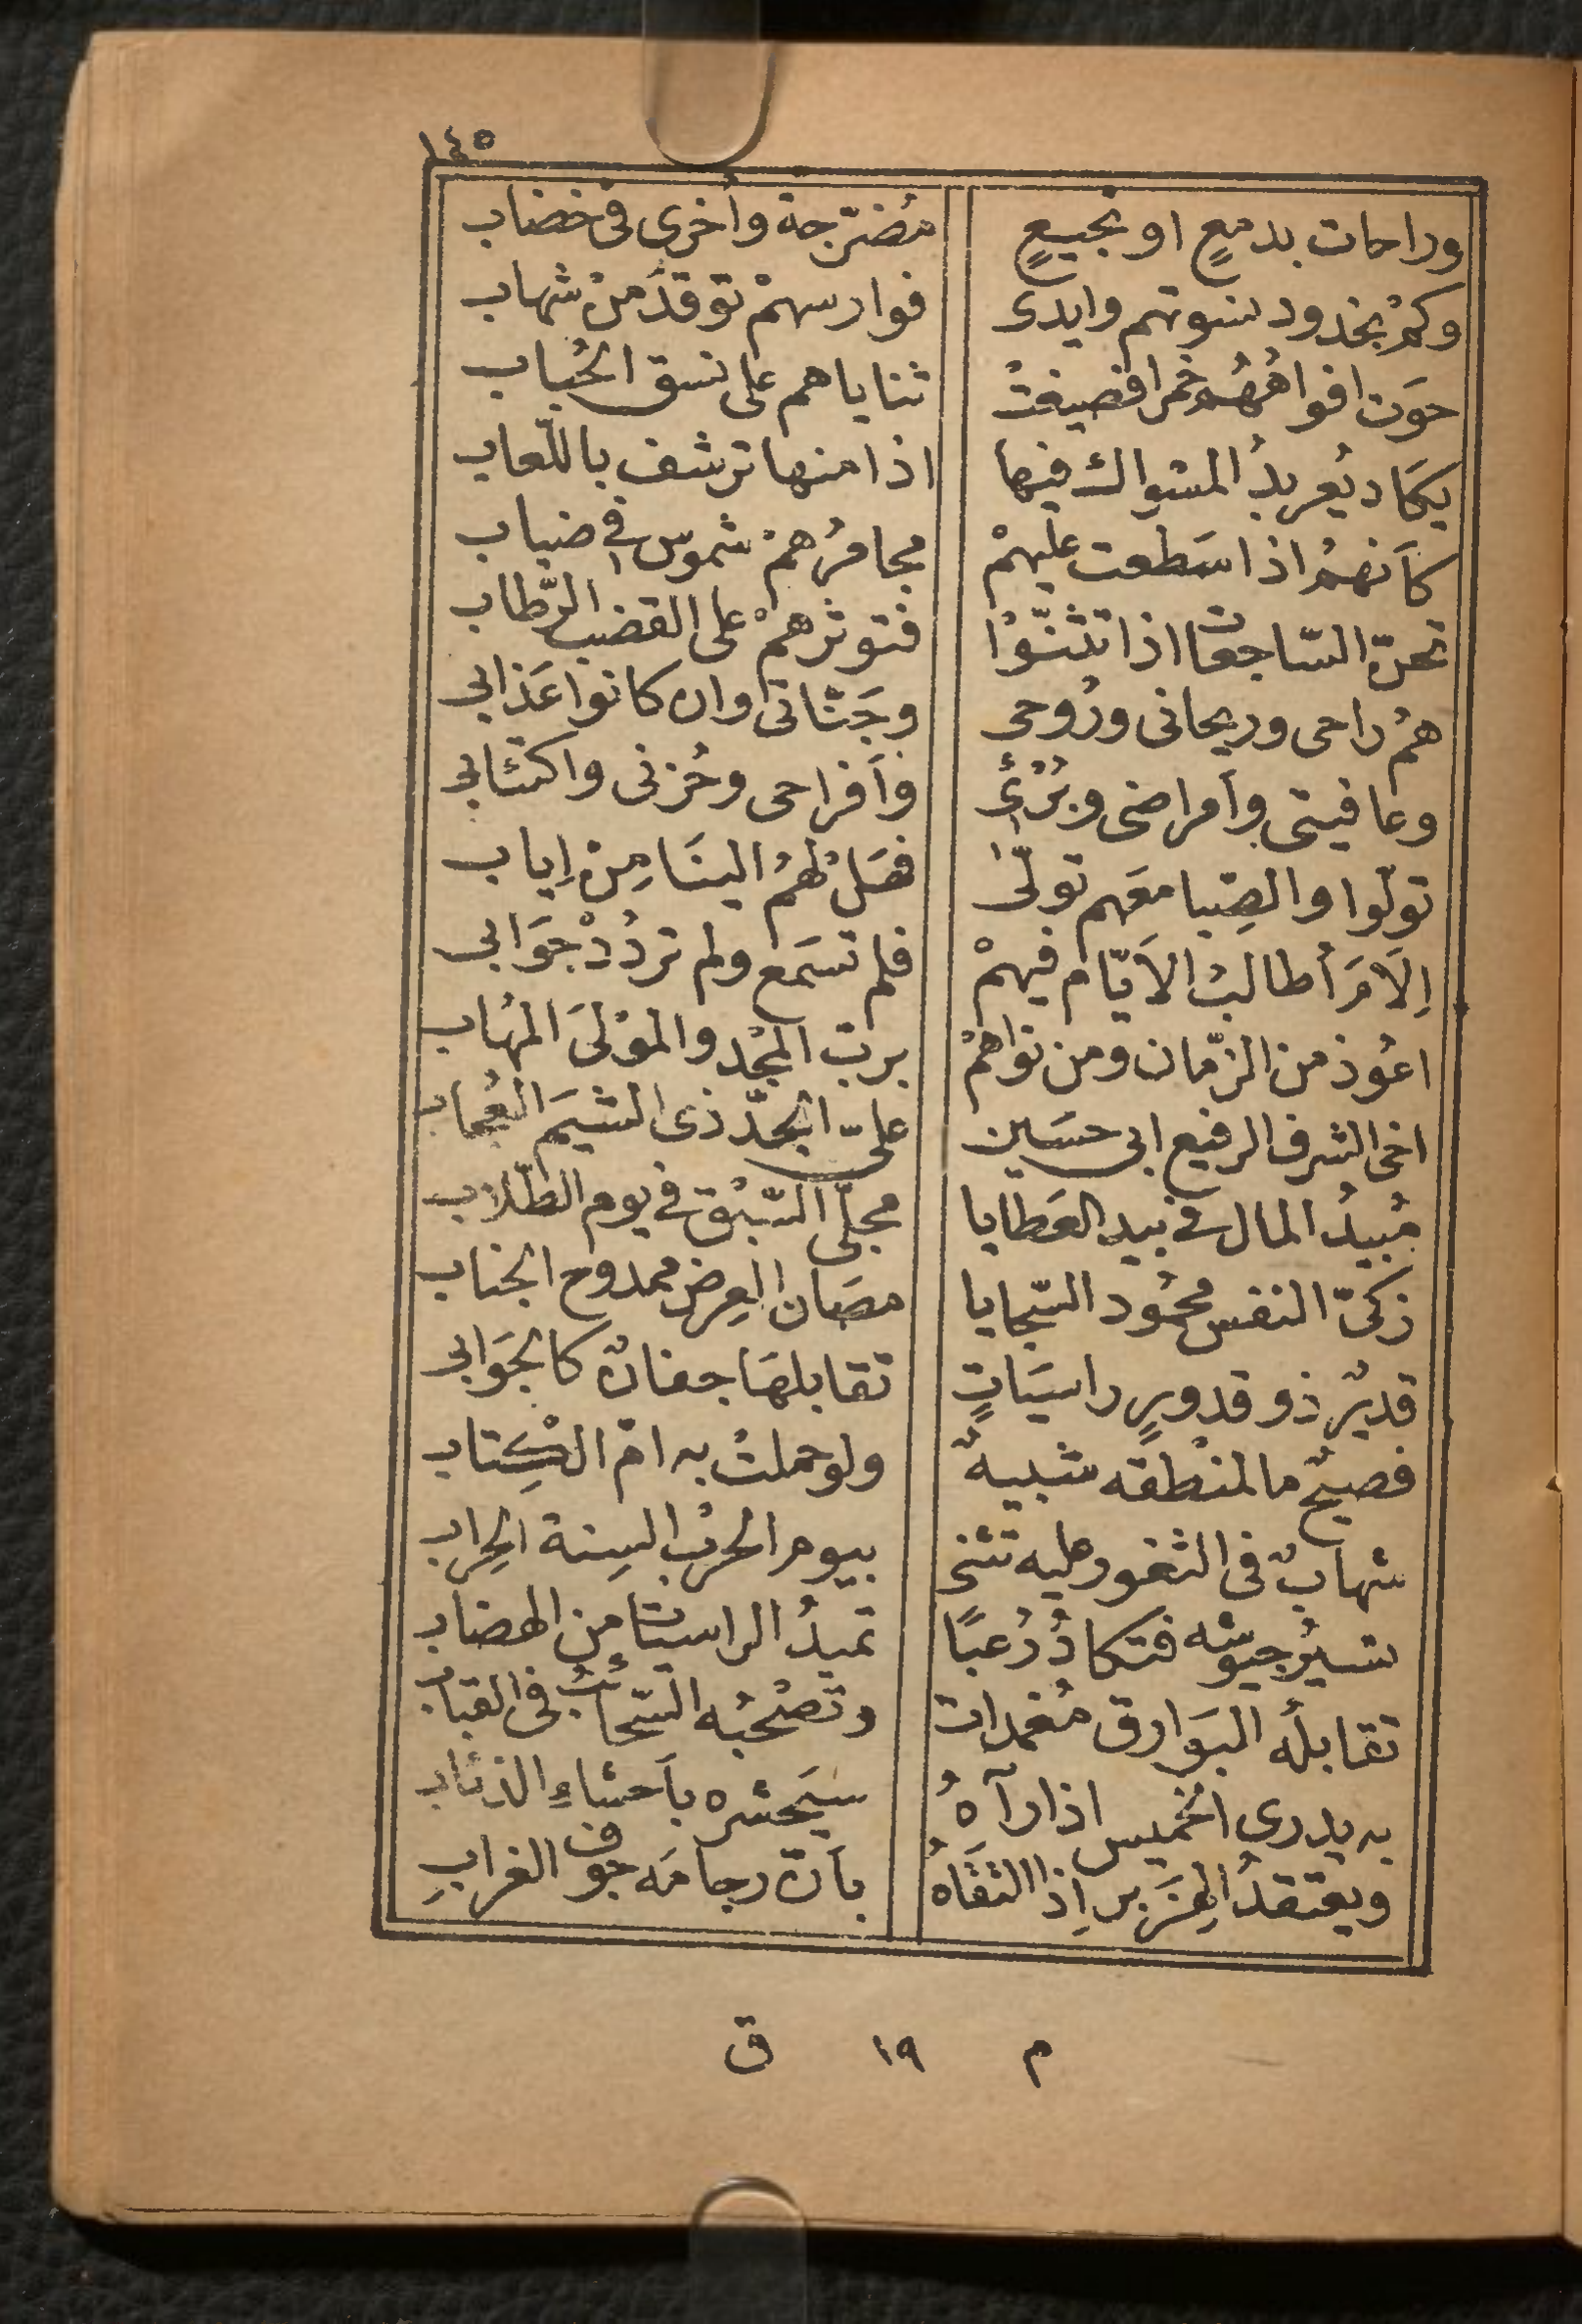 ١٤٥
وراحات بدمعٍ او نجيعٍ مُضرّجة وأخرى في خضاب
وكمْ بخدود نسوتهم وايدى فوارسهمْ توقدُ منْ شهاب
حوَت افواهُهُم خمرا فصيغتْ ثناياهم على نسق الحُباب
يكَاد يُعربدُ المسْواك فيها اذا منها ترشف باللّعاب
كأنهمُ اذا سَطعت عليهمْ مجامرُهمْ شموس في ضباب
تحنّ السّاجعات اذا تثنّوْا فتوثرهمْ على القضب الرّطاب
همُ راحى وريحانى ورُوحى وجَنّاتى وان كانوا عَذابى
وعافيتى وأمراضى وبُرْئى وأفراحى وحُزنى واكتئابى
تولّوا والصِّبا معَهم تولّى فهَلْ لهُمُ الينَا مِنْ اِياب
اِلاَمَ أطالبُ الاَيّام فيهمْ فلم تسَمع ولم تردُدْ جوَابى
اعُوذ من الزّمان ومن نواهمْ بربّ المجْد والموْلىَ المهُاب
اخى الشرف الرفيع ابى حسَين علىّ الجدّ ذى الشيَم العُجاب
مُبيدُ المال في بيد العَطايا مجلّى السّبْق في يوم الطّلاب
زكىّ النفس محمُود السّجايا مصَان العِرض ممدوح الجناب
قديرٌ ذو قدورٍ راسيَاتٍ تقابلهَا جفانٌ كالجوَابى
فصيحٌ ما لمنْطقه شبيهٌ ولو حملتْ به امّ الكِتاب
شهابٌ في الثغور عليه تثنى بيوم الحربْ السِنة الحِراب
تسيرُ جيوشه فتكادُ رُعبًا تميدُ الراسيات من الهضاب
تقابلُه البوَارق مُغمدات وتصْحبُه السّحائبُ في القباب
به يدرى الخميس اذا رآهُ سيَحشره بأحشاءِ الذئاب
ويعتقدُ الهِزَبر اِذا التقَاهُ بأنّ رجامَه جوف الغرابِ
م ١٩ ق